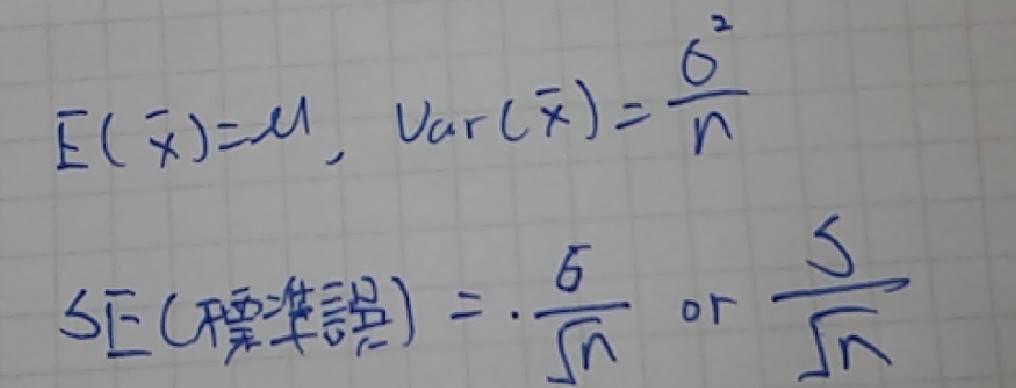 E(x̄)=μ, Var(x̄)=σ²/n
SE(標準誤)=·σ/√n or S/√n